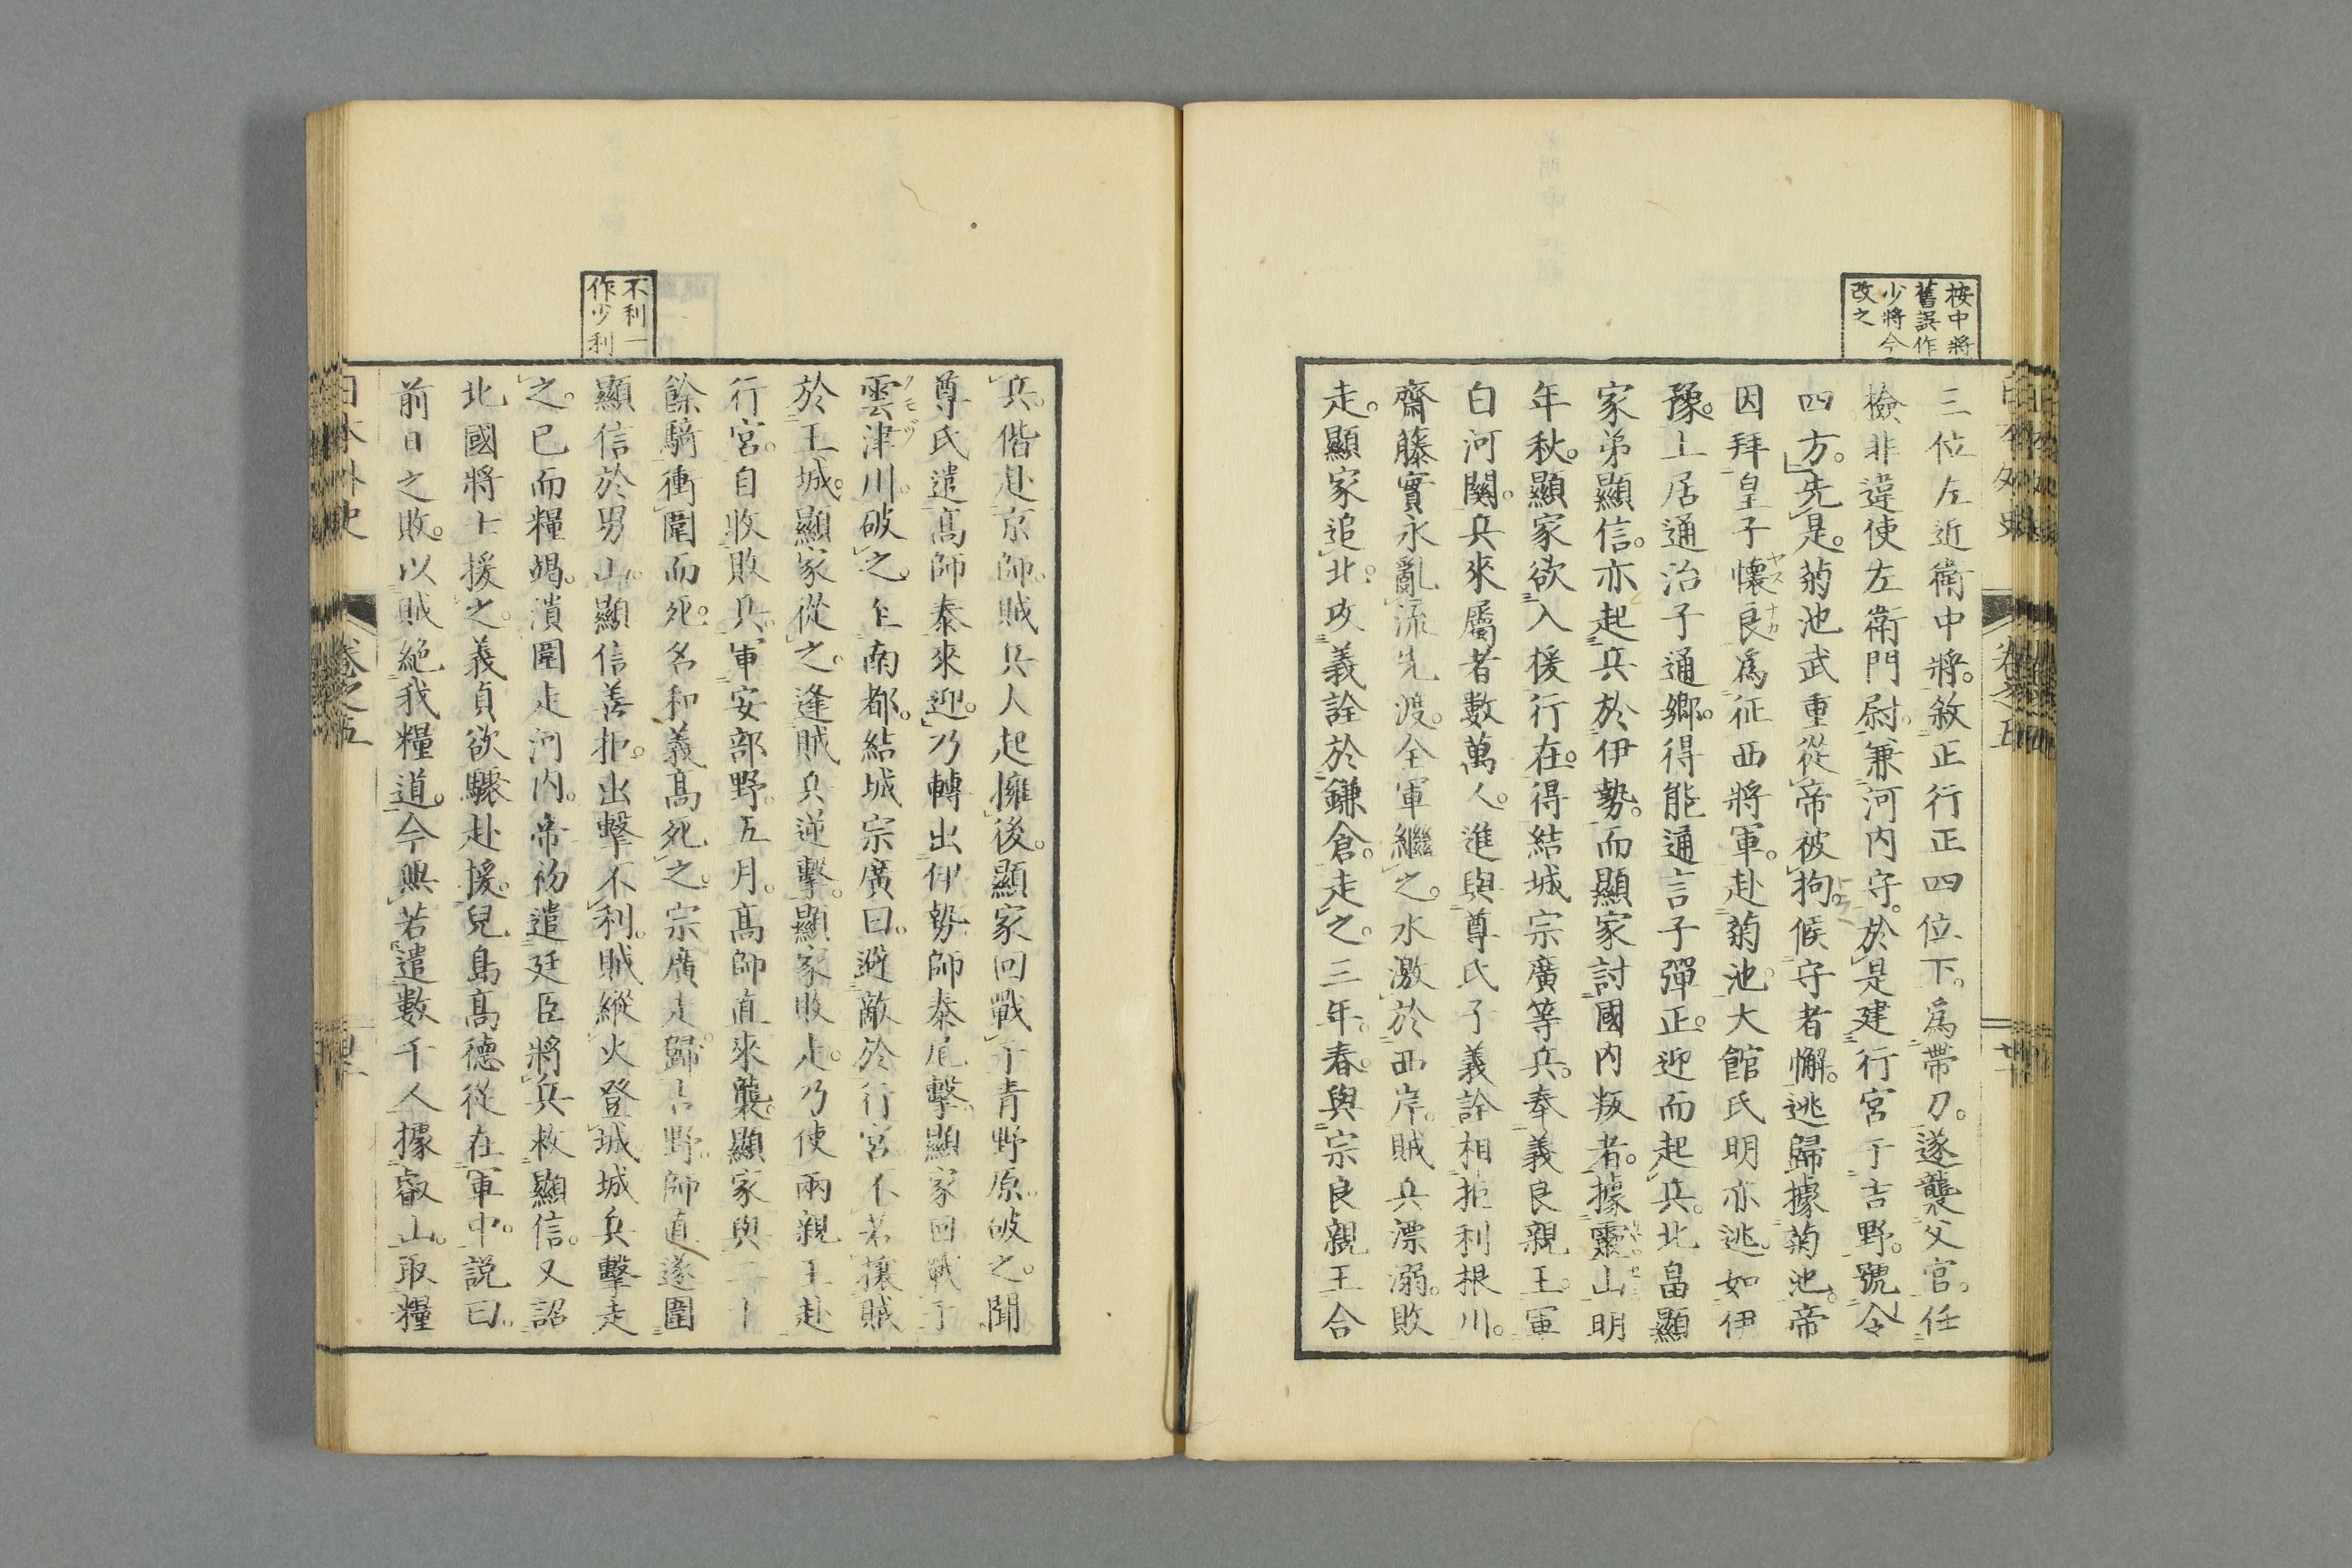 按中將
舊誤作
少將今
改之
三位左近衛中將。敘正行正四位下。爲帶刀。遂襲父官。任
檢非違使左衛門尉。兼河内守。於是建行宮于吉野。號令
四方。先是。菊池武重從帝被拘。候守者懈。逃歸據菊池。帝
因拜皇子懷良爲征西將軍。赴菊池。大館氏明亦逃如伊
豫。土居通治子通鄉。得能通言子彈正。迎而起兵。北畠顯
家弟顯信。亦起兵於伊勢。而顯家討國内叛者。據靈山。明
年秋。顯家欲入援行在。得結城宗廣等兵。奉義良親王。軍
白河關。兵來屬者數萬人。進與尊氏子義詮相拒利根川。
齋藤實永亂流先渡。全軍繼之。水激於西岸。賊兵漂溺。敗
走。顯家追北。攻義詮於鎌倉。走之。三年。春。與宗良親王合
兵。偕赴京師。賊兵人起擁後。顯家回戰于青野原。破之。聞
尊氏遣高師泰來迎。乃轉出伊勢。師泰尾擊。顯家回戰于
雲津川。破之。在南都。結城宗廣曰。避敵於行宮。不若攘賊
於王城。顯家從之。逢賊兵逆擊。顯家敗走。乃使兩親王赴
行宮。自收敗兵。軍安部野。五月。高師直來襲。顯家與二十
餘騎衝圍而死。名和義高死之。宗廣走歸吉野。師直遂圍
顯信於男山。顯信善拒。出擊不利。賊縱火登城。城兵擊走
之。已而糧竭。潰圍走河内。帝初遣廷臣將兵救顯信。又詔
北國將士援之。義貞欲驟赴援。兒島高德從在軍中。説曰。
前日之敗。以賊絕我糧道。今與若遣數千人據叡山。取糧
不利一
作少利
日本外史
卷之五